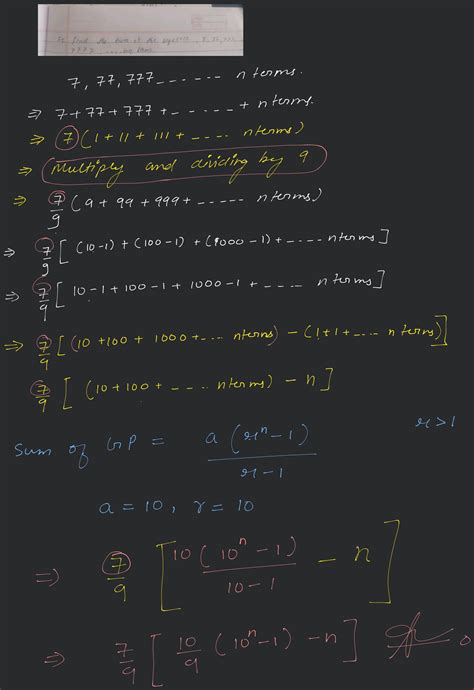 find the sum of the
7, 77, 777 ------ n terms.
⇒ 7+77+777 + ------ + n terms.
⇒ 7 (1+11+111+ ---- n terms)
⇒ Multiply and dividing by 9
⇒ 7/9 (9+99+999+ ----- n terms)
⇒ 7/9 [ (10-1) + (100-1) + (1000-1) + ---- n terms ]
⇒ 7/9 [ 10-1+100-1+1000-1+ ---- n terms ]
⇒ 7/9 [ (10+100+1000+--- n terms) - (1+1+---- n terms) ]
7/9 [ (10+100+ ---- n terms) - n ]
Sum of GP = a (r^n - 1) / r-1 r>1
a = 10, r = 10
⇒ 7/9 [ 10 (10^n - 1) / 10-1 - n ]
⇒ 7/9 [ 10/9 (10^n-1) - n ]